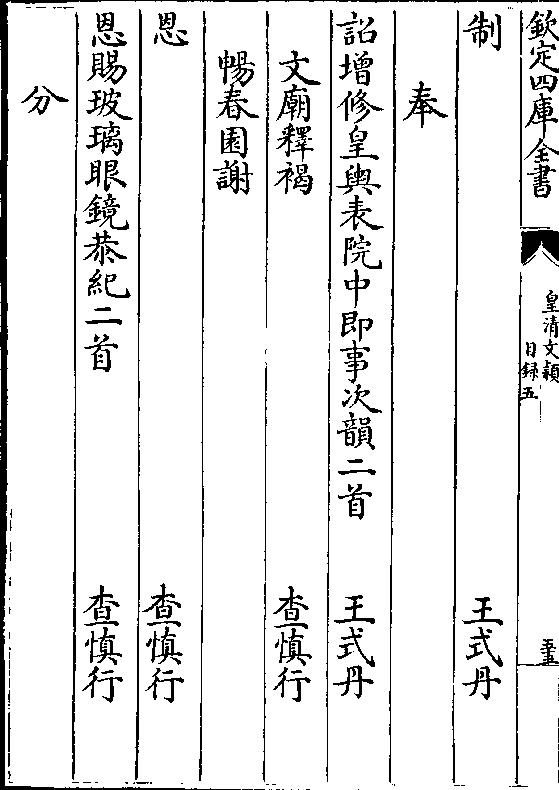 欽定四庫全書
皇清文穎
目録五
制 王式丹
奉
詔增修皇輿表院中即事次韻二首 王式丹
文廟釋褐 查慎行
暢春園謝
恩 查慎行
恩賜玻璃眼鏡恭紀二首 查慎行
分